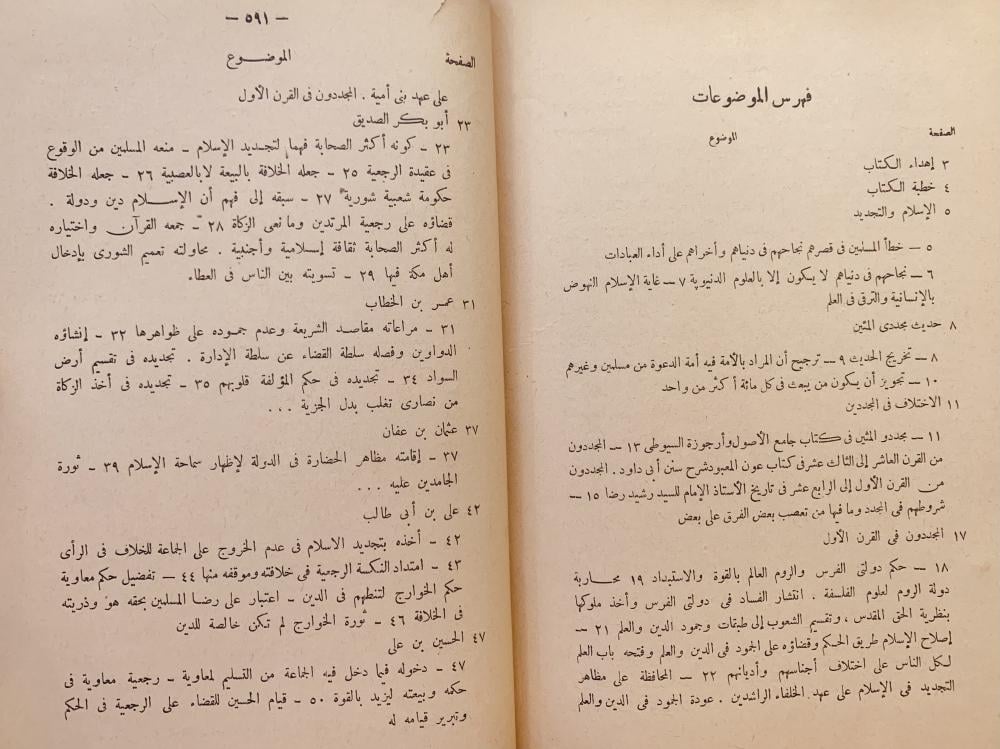 فهرس الموضوعات
الصفحة الموضوع
٣ إهداء الكتاب
٤ خطبة الكتاب
٥ الإسلام والتجديد
٥ — خطأ المسلمين فى قصرهم نجاحهم فى دنياهم وأخراهم على أداء العبادات
٦ — نجاحهم فى دنياهم لا يكون إلا بالعلوم الدنيوية ٧ — غاية الإسلام النهوض
بالإنسانية والترقى فى العلم
٨ حديث مجددى المئين
٨ — تخريج الحديث ٩ — ترجيح أن المراد بالأمة فيه أمة الدعوة من مسلمين وغيرهم
١٠ — تجويز أن يكون من يبعث فى كل مائة أكثر من واحد
١١ الاختلاف فى المجددين
١١ — مجددو المئين فى كتاب جامع الأصول وأرجوزة السيوطى ١٣ — المجددون
من القرن العاشر إلى الثالث عشر فى كتاب عون المعبود شرح سنن أبى داود . المجددون
من القرن الأول إلى الرابع عشر فى تاريخ الأستاذ الإمام للسيد رشيد رضا ١٥ —
شروطهم فى المجدد وما فيها من تعصب بعض الفرق على بعض
١٧ المجددون فى القرن الأول
١٨ — حكم دولتى الفرس والروم العالم بالقوة والاستبداد ١٩ محاربة
دولة الروم لعلوم الفلسفة . انتشار الفساد فى دولتى الفرس وأخذ ملوكها
بنظرية الحق المقدس ، وتقسيم الشعوب إلى طبقات وجمود الدين والعلم ٢١ —
إصلاح الإسلام طريق الحكم وقضاؤه على الجمود فى الدين والعلم وفتحه باب العلم
لكل الناس على اختلاف أجناسهم وأديانهم ٢٢ — المحافظة على مظاهر
التجديد فى الإسلام على عهد الخلفاء الراشدين . عودة الجمود فى الدين والعلم
— ٥٩١ —
الصفحة الموضوع
على عهد بنى أمية . المجددون فى القرن الأول
٢٣ أبو بكر الصديق
٢٣ — كونه أكثر الصحابة فهما لتجديد الإسلام — منعه المسلمين من الوقوع
فى عقيدة الرجعية ٢٥ — جعله الخلافة بالبيعة لا بالعصبية ٢٦ — جعله الخلافة
حكومة شعبية شورية ٢٧ — سبقه إلى فهم أن الإسلام دين ودولة .
قضاؤه على رجعية المرتدين ومانعى الزكاة ٢٨ — جمعه القرآن واختياره
له أكثر الصحابة ثقافة إسلامية وأجنبية . محاولته تعميم الشورى بإدخال
أهل مكة فيها ٢٩ — تسويته بين الناس فى العطاء
٣١ عمر بن الخطاب
٣١ — مراعاته مقاصد الشريعة وعدم جموده على ظواهرها ٣٢ — إنشاؤه
الدواوين وفصله سلطة القضاء عن سلطة الإدارة . تجديده فى تقسيم أرض
السواد ٣٤ — تجديده فى حكم المؤلفة قلوبهم ٣٥ — تجديده فى أخذ الزكاة
من نصارى تغلب بدل الجزية ...
٣٧ عثمان بن عفان
٣٧ — إقامته مظاهر الحضارة فى الدولة لإظهار سماحة الإسلام ٣٩ — ثورة
الجامدين عليه ...
٤٢ على بن أبى طالب
٤٢ — أخذه بتجديد الاسلام فى عدم الخروج على الجماعة للخلاف فى الرأى
٤٣ — امتداد النكسة الرجعية فى خلافته وموقفه منها ٤٤ — تفضيل حكم معاوية
حكم الخوارج لتنطعهم فى الدين — اعتبار على رضا المسلمين بحقه هو وذريته
فى الخلافة ٤٦ — ثورة الخوارج لم تكن خالصة للدين
٤٧ الحسين بن على
٤٧ — دخوله فيما دخل فيه الجماعة من التسليم لمعاوية — رجعية معاوية فى
حكمه وبيعته ليزيد بالقوة ٥٠ — قيام الحسين للقضاء على الرجعية فى الحكم
وتبرير قيامه له